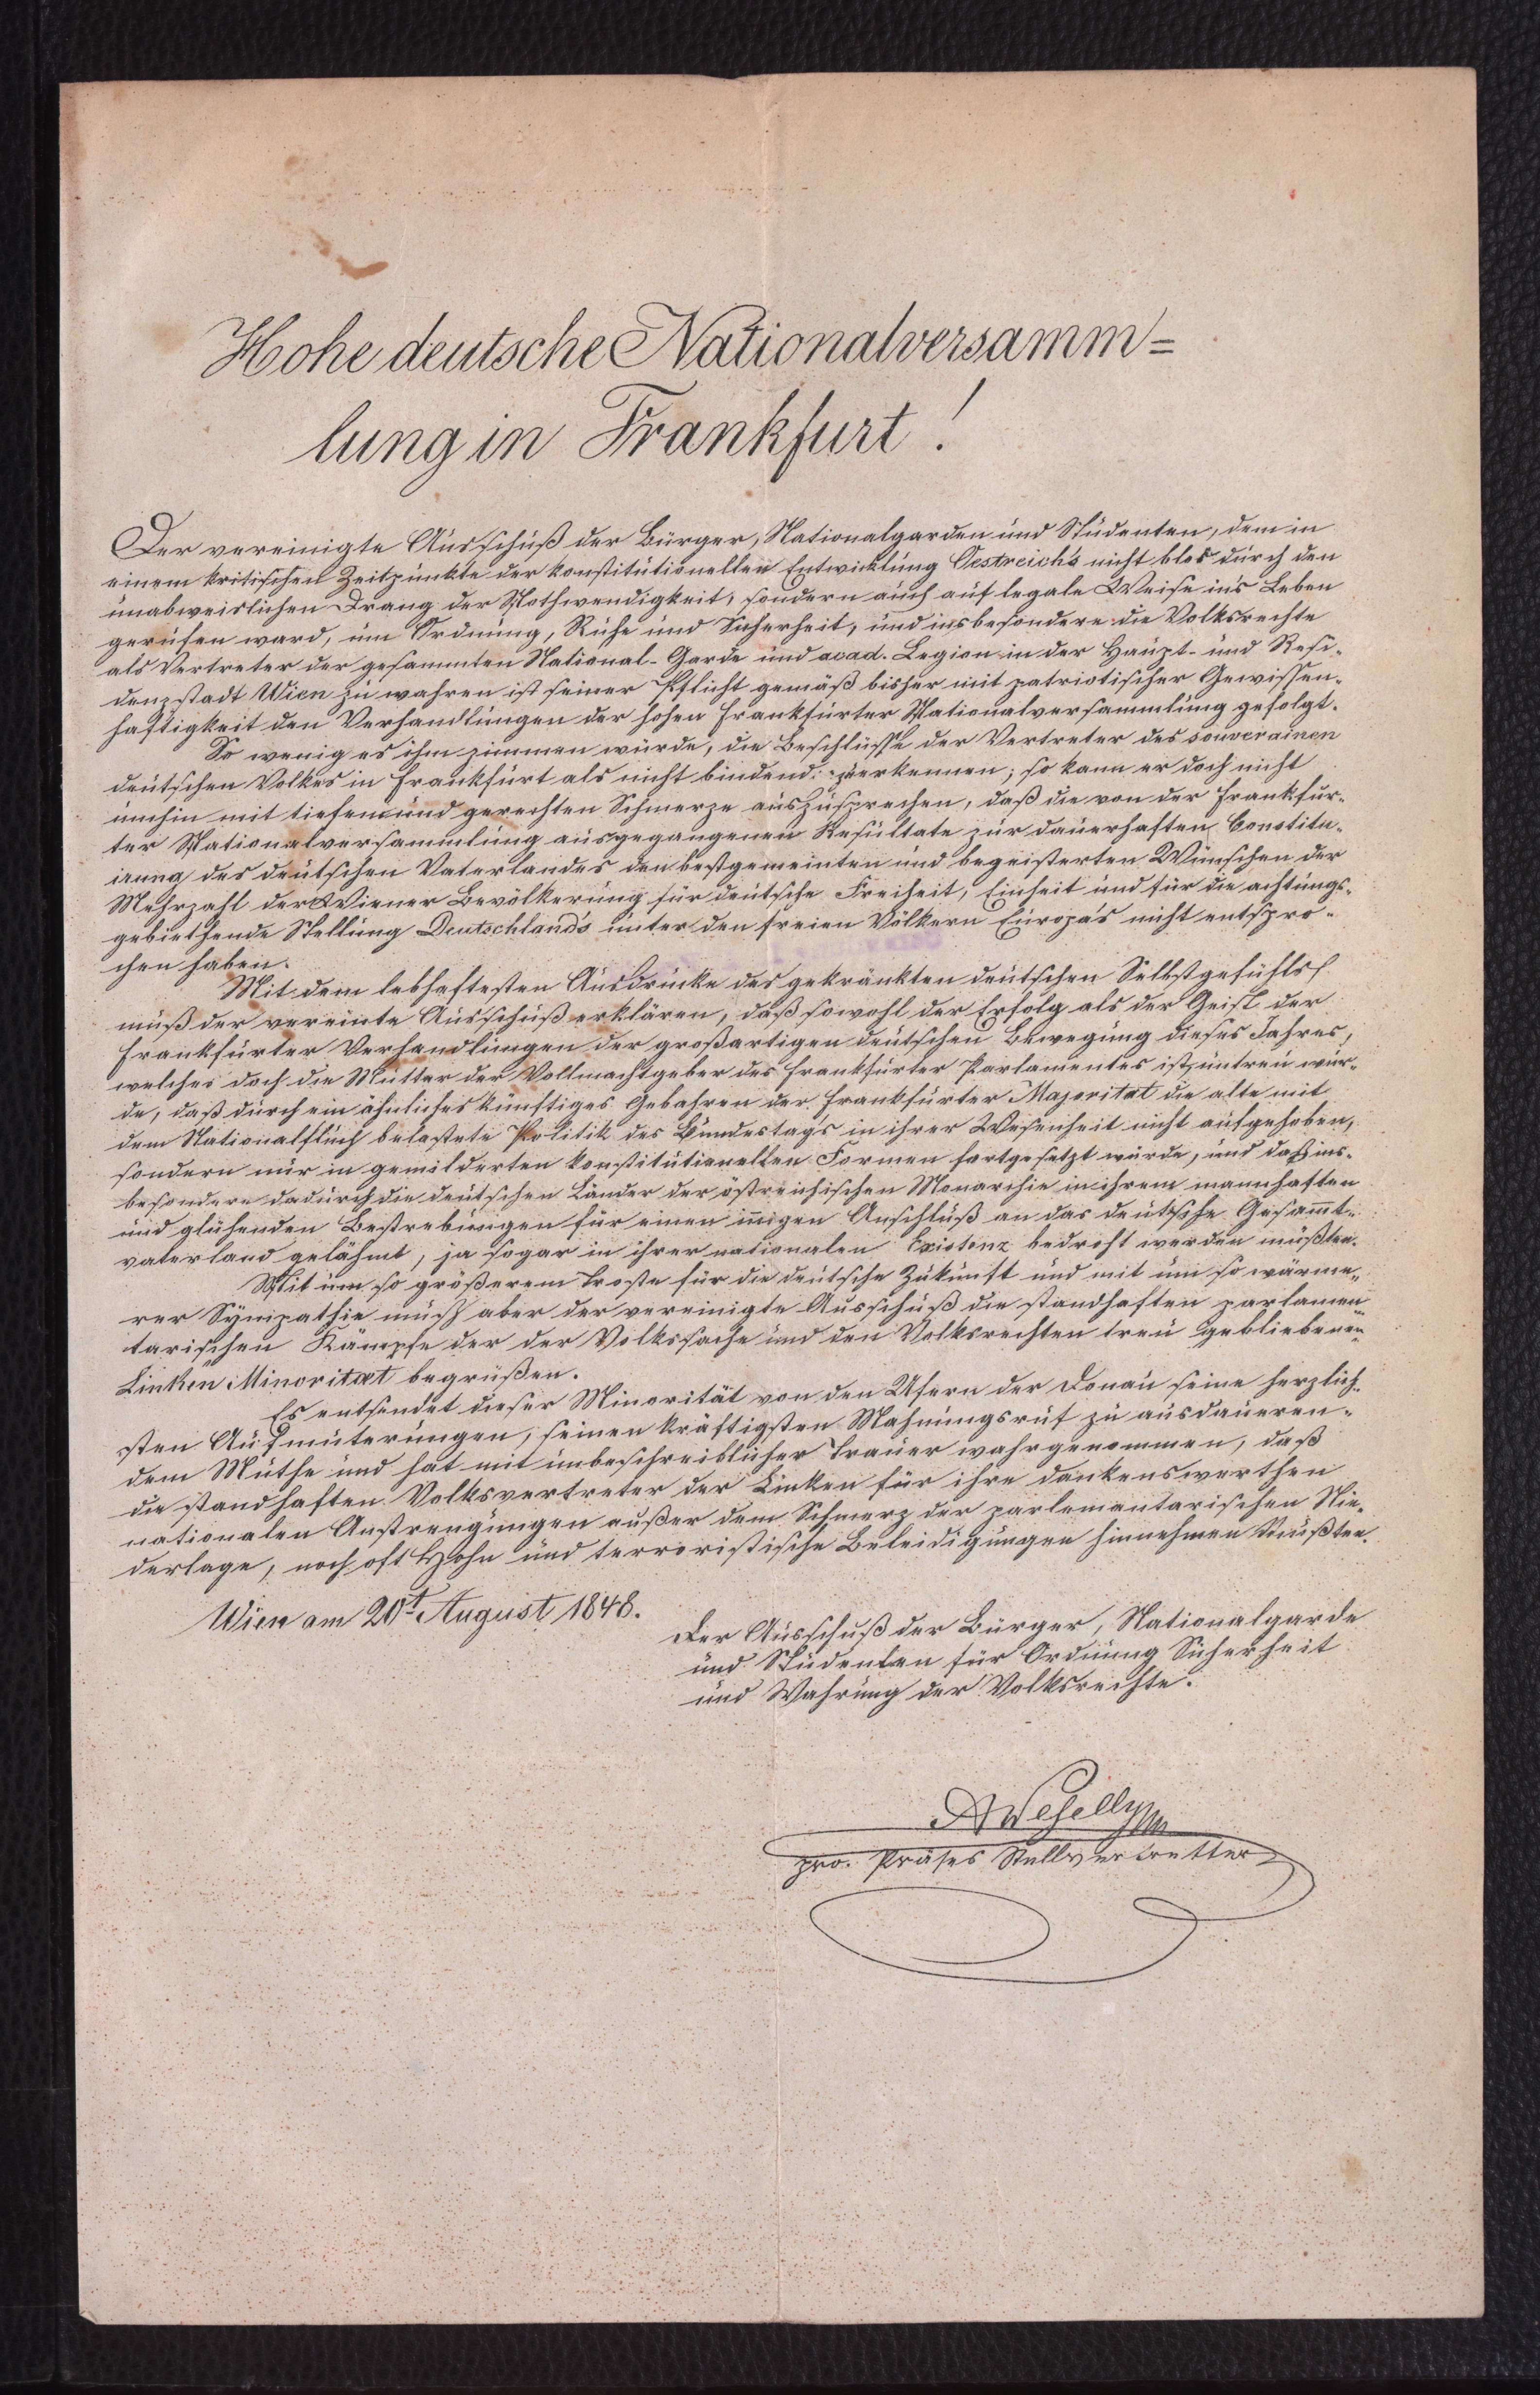 Hohe deutsche Nationalversamm=
lung in Frankfurt!
Der vereinigte Ausschuß der Bürger, Nationalgarden und Studenten, dem in
einem kritischen Zeitpunkte der konstitutionellen Entwicklung Oestreich's nicht blos durch den
unabweislichen Drang der Nothwendigkeit, sondern auch auf legale Weise in's Leben
gerufen ward, um Ordnung, Ruhe und Sicherheit, und insbesondere die Volksrechte
als Vertreter der gesammten National-Garde und acad. Legion in der Haupt- und Resi-
denzstadt Wien zu wahren ist seiner Pflicht gemäß bisher mit patriotischer Gewissen-
haftigkeit den Verhandlungen der hohen Frankfurter Nationalversammlung gefolgt.
So wenig es ihm zimmen würde, die Beschlüsse der Vertreter des souverainen
deutschen Volkes in Frankfurt als nicht bindend erkennen; so kann er doch nicht
umhin mit tiefem und gerechten Schmerze auszusprechen, daß die von der Frankfur-
ter Nationalversammlung ausgegangenen Resultate zur dauerhaften Constitu-
irung des deutschen Vaterlandes den bestgemeinten und begeisterten Wünschen der
Mehrzahl der Wiener Bevölkerung für deutsche Freiheit, Einheit und für die achtungs-
gebiethende Stellung Deutschland's unter den freien Völkern Europa's nicht entspro-
chen haben.
Mit dem lebhaftesten Ausdrucke des gekränkten deutschen Selbstgefühls
muß der vereinte Ausschuß erklären, daß sowohl der Erfolg als der Geist der
Frankfurter Verhandlungen der großartigen deutschen Bewegung dieses Jahres,
welches doch die Mutter der Vollmachtgeber des Frankfurter Parlamentes ist, untreu wur-
de, daß durch ein ähnliches künftiges Gebahren der Frankfurter Majoritat die alte mit
dem Nationalfluch belastete Politik des Bundestag's in ihrer Wesenheit nicht aufgehoben,
sondern nur in gemilderten konstitutionellen Formen fortgesetzt würde, und daß ins-
besondere dadurch die deutschen Länder der östreichischen Monarchie in ihrem mannhaften
und glühenden Bestrebungen für einen innigen Anschluß an das deutsche Gesammt-
vaterland gelähmt, ja sogar in ihrer nationalen Existenz bedroht werden müßten.
Mit um so größerem Troste für die deutsche Zukunft und mit um so wärme-
rer Sympathie muß aber der vereinigte Ausschuß die standhaften parlamen-
tarischen Kämpfe der der Volkssache und den Volksrechten treu gebliebenen
Linken Minoritæt begrüßen.
Es entsendet dieser Minorität von den Ufern der Donau seine herzlich-
sten Aufmuterungen, seinen kräftigsten Mahnungsruf zu ausdaueren-
dem Muthe und hat mit unbeschreiblicher Trauer wahrgenommen, daß
die standhaften Volksvertreter der Linken für ihre dankenswerthen
nationalen Anstrengungen außer dem Schmerz der parlemantarischen Nie-
derlage, noch oft Hohn und terroristische Beleidigungen hinnehmen mußten.
Wien am 20t August 1848.
Der Ausschuß der Bürger, Nationalgarde
und Studenten für Ordnung Sicherheit
und Wahrung der Volksrechte.
A Wesselly
pro. Präses Stellvertretter